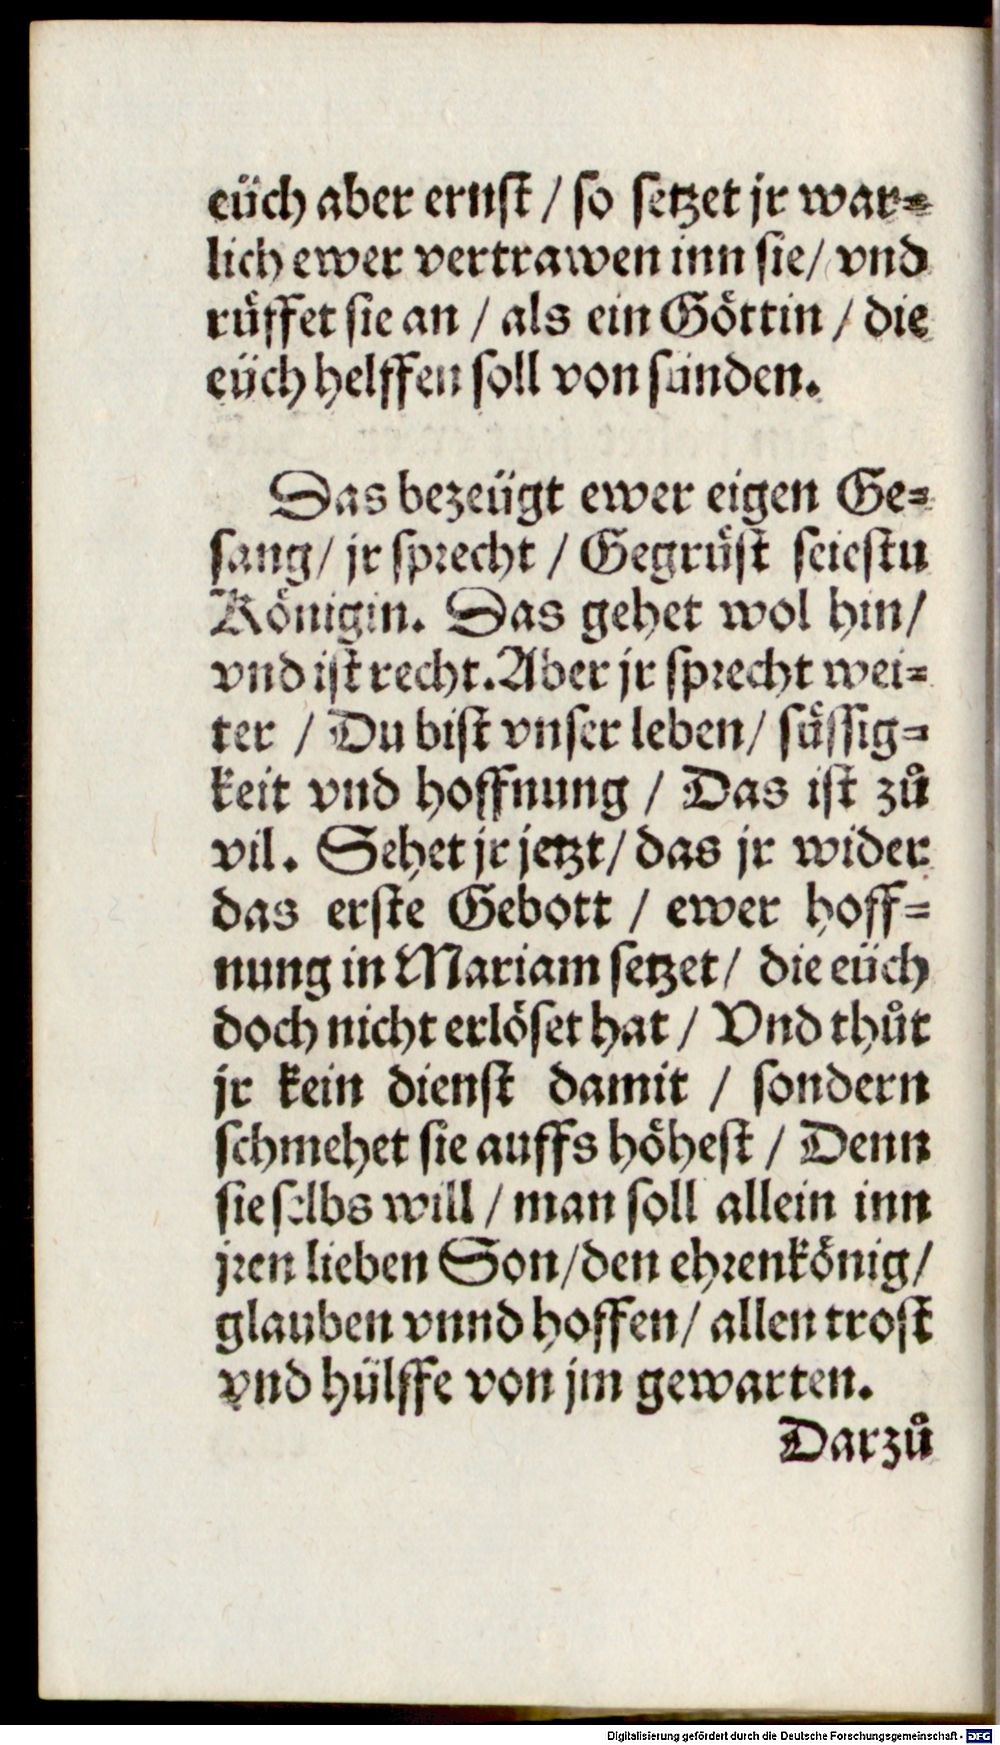 eüch aber ernst / so setzet jr war=
lich ewer vertrawen inn sie / vnd
ruͤffet sie an / als ein Goͤttin / die
eüch helffen soll von sünden.
Das bezeügt ewer eigen Ge=
sang / jr sprecht / Gegruͤst seiestu
Koͤnigin. Das gehet wol hin /
vnd ist recht. Aber jr sprecht wei=
ter / Du bist vnser leben / suͤssig=
keit vnd hoffnung / Das ist zů
vil. Sehet jr jetzt / das jr wider
das erste Gebott / ewer hoff=
nung in Mariam setzet / die eüch
doch nicht erloͤset hat / Vnd thůt
jr kein dienst damit / sondern
schmehet sie auffs hoͤhest / Denn
sie selbs will / man soll allein inn
jren lieben Son / den ehrenkoͤnig /
glauben vnnd hoffen / allen trost
vnd hülffe von jm gewarten.
Darzů
Digitalisierung gefördert durch die Deutsche Forschungsgemeinschaft - DFG